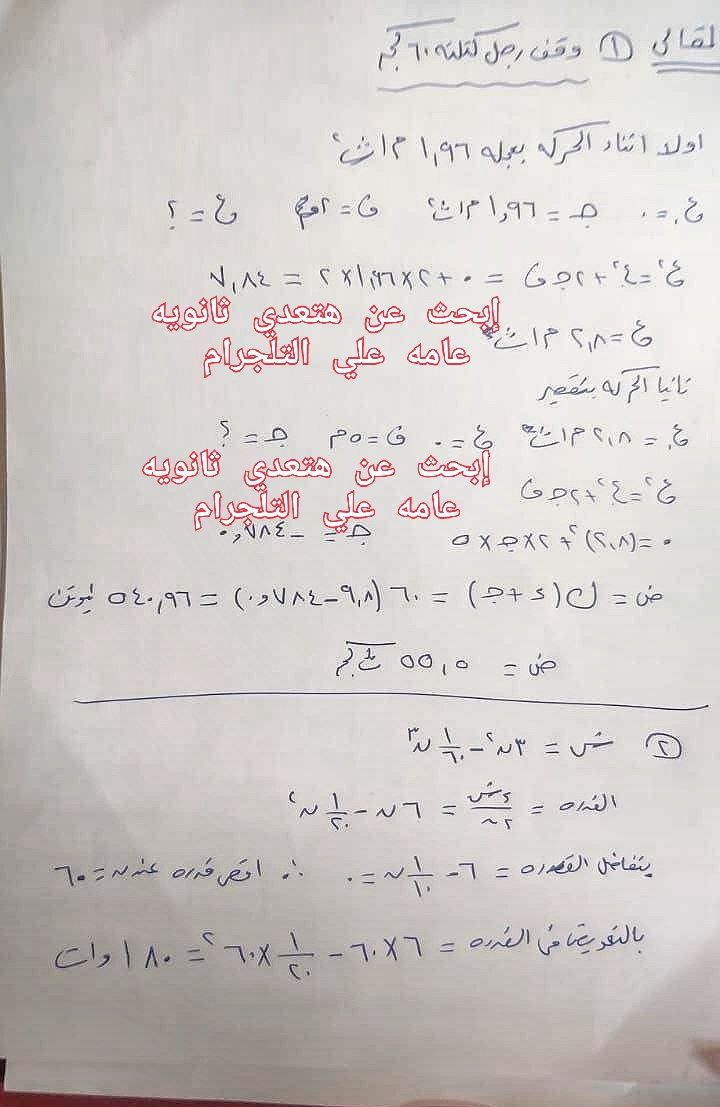 المقالى ① وقف رجل كتلته ٦٠ كجم
اولا اثناء الحركه بعجله ١,٩٦ م/ث²
ع. = ٠ جـ = ١,٩٦ م/ث² ف = ٢م ع = ؟
ع² = ع.² + ٢جـ ف = ٠ + ٢×١,٩٦×٢ = ٧,٨٤
إبحث عن هتعدي ثانويه
عامه علي التلجرام
ع = ٢,٨ م/ث
ثانيا الحركه بتقصير
ع. = ٢,٨ م/ث ع = ٠ ف = ٥م جـ = ؟
إبحث عن هتعدي ثانويه
عامه علي التلجرام
ع² = ع.² + ٢جـ ف
٠ = (٢,٨)² + ٢×جـ×٥ جـ = −٠,٧٨٤
ض = ك(ء + جـ) = ٦٠ (٩,٨ − ٠,٧٨٤) = ٥٤٠,٩٦ نيوتن
ض = ٥٥,٥ ث كجم
② ش = ٣ن² − ١/٦٠ ن³
القدره = ءش/ءن = ٦ن − ١/٢٠ ن²
بتفاضل القدره = ٦ − ١/١٠ ن = ٠ ∴ اقصى قدره عند ن = ٦٠
بالتعويض فى القدره = ٦×٦٠ − ١/٢٠ ×٦٠² = ١٨٠ وات